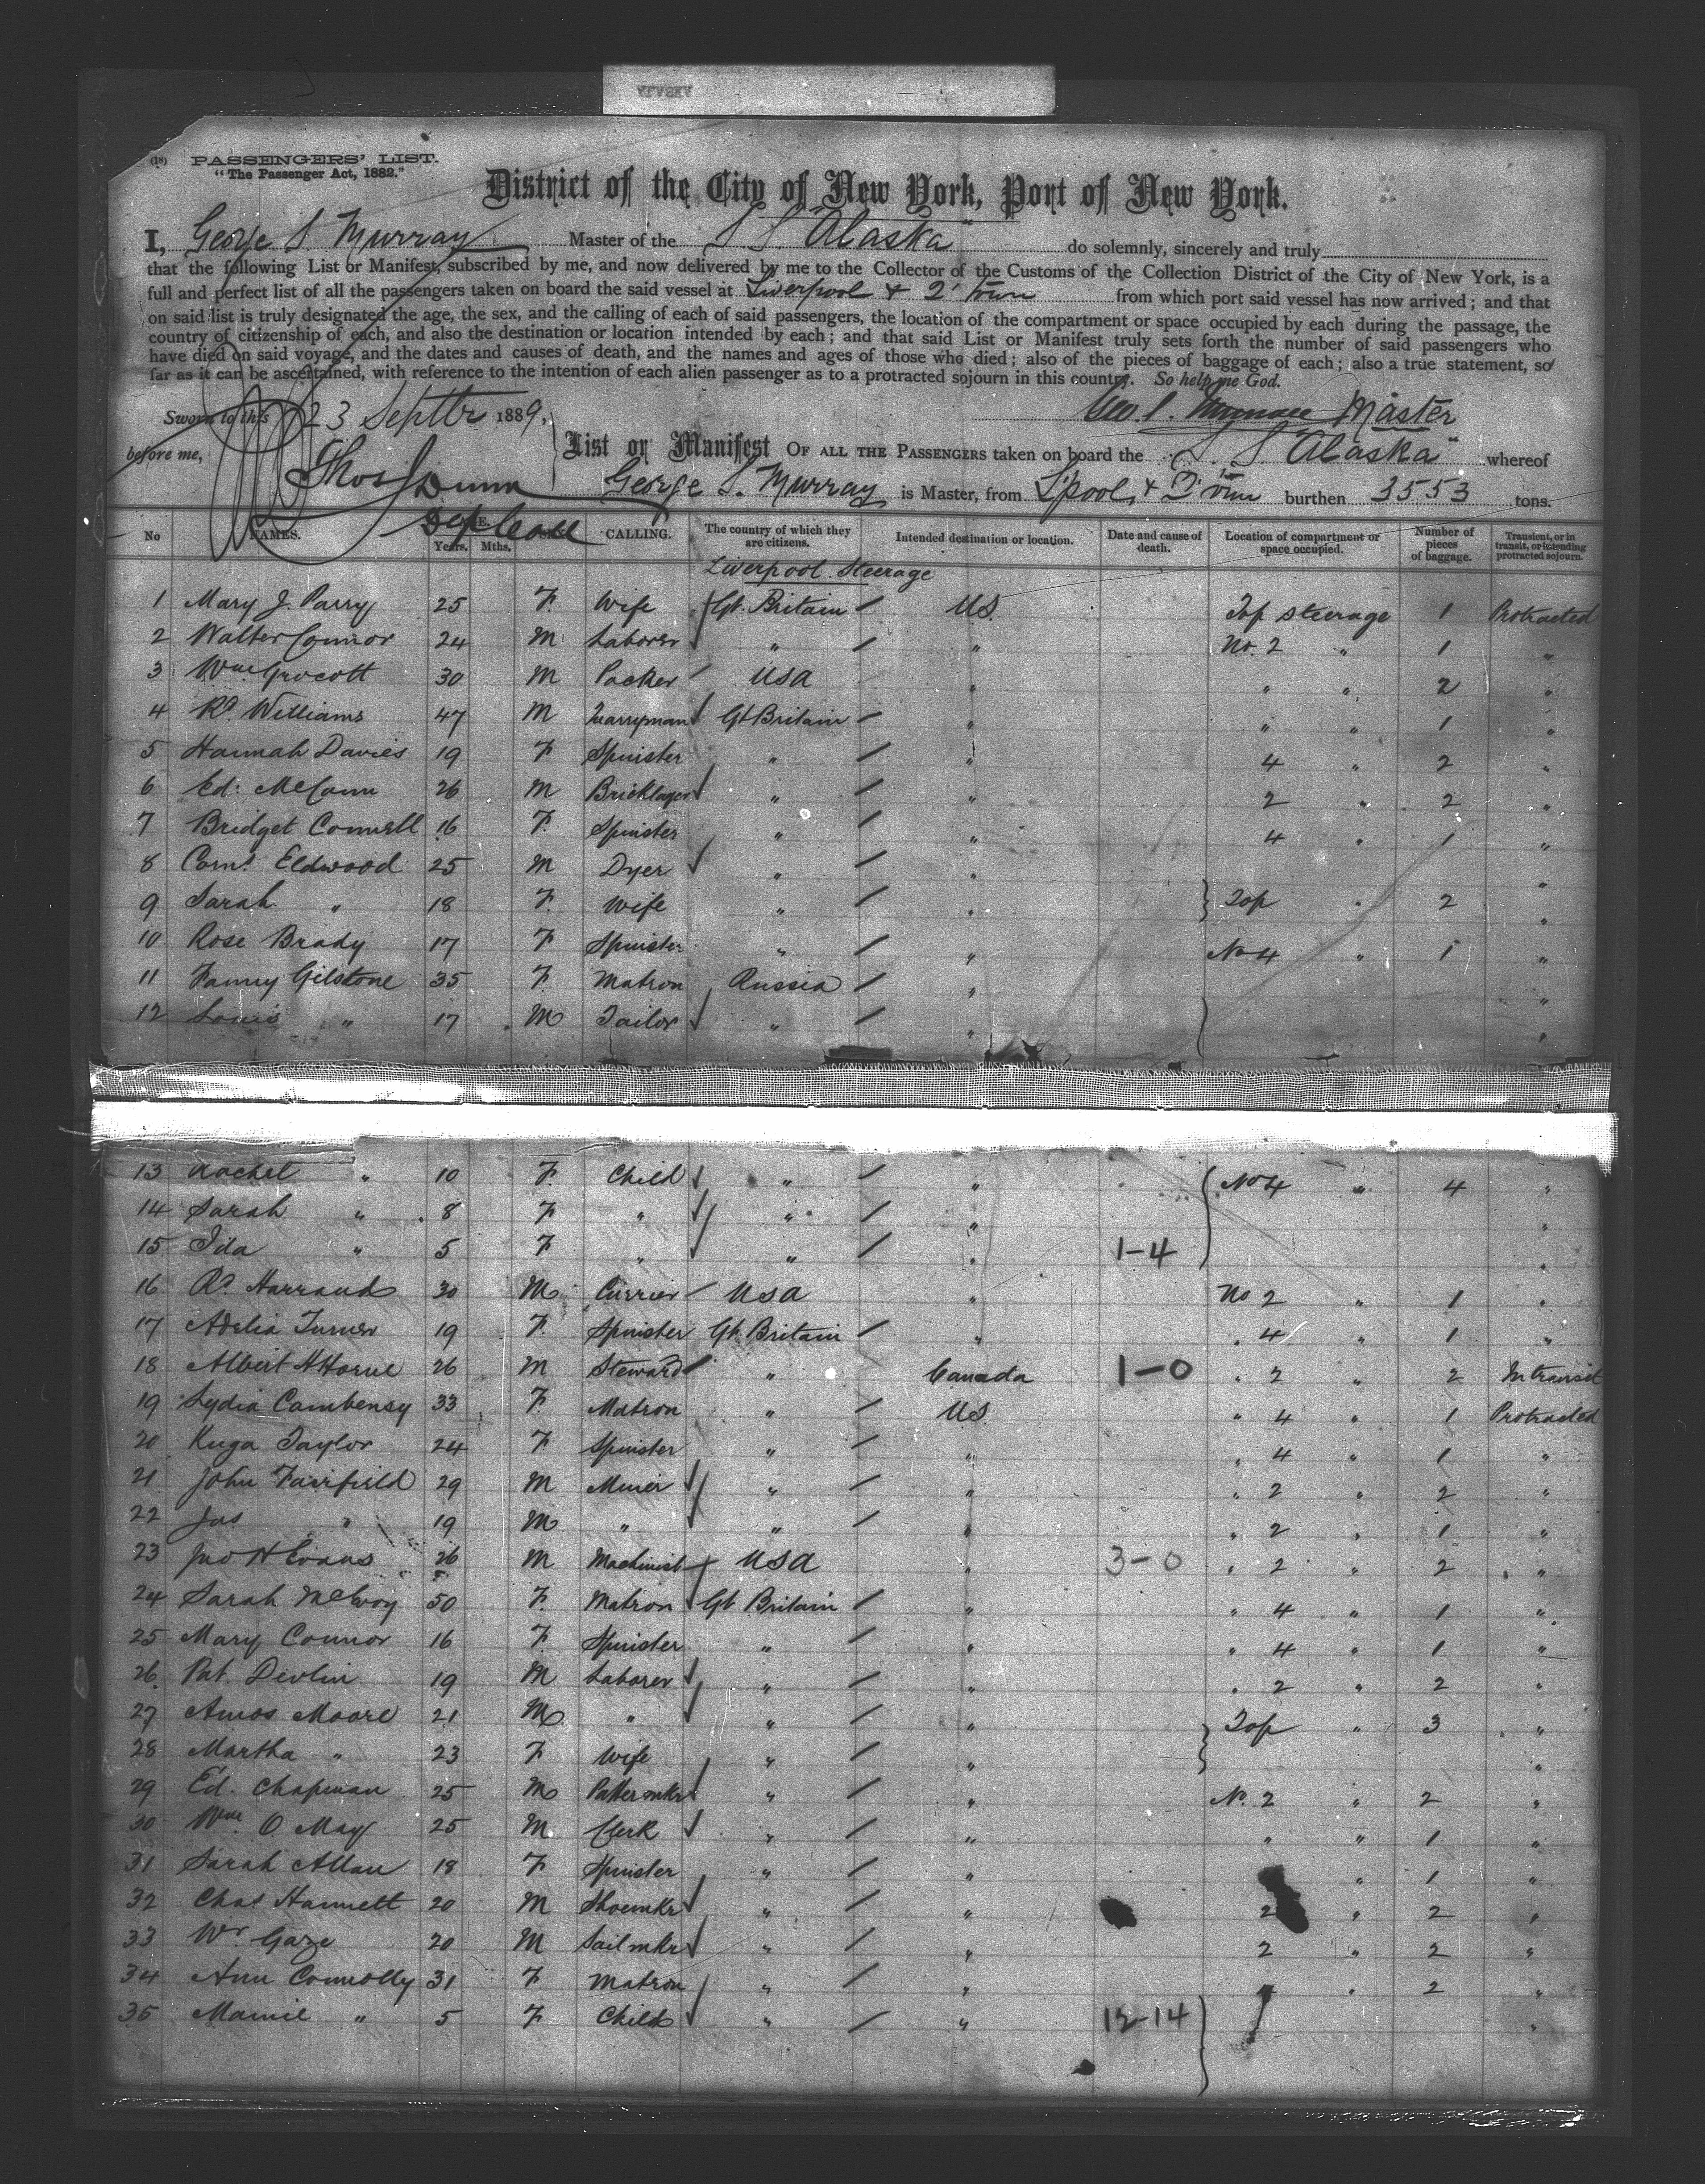 (18) PASSENGERS' LIST.
"The Passenger Act, 1882."
District of the City of New York, Port of New York.
I, George S. Murray Master of the S S "Alaska" do solemnly, sincerely and truly
that the following List or Manifest, subscribed by me, and now delivered by me to the Collector of the Customs of the Collection District of the City of New York, is a
full and perfect list of all the passengers taken on board the said vessel at Liverpool & Q'town from which port said vessel has now arrived; and that
on said list is truly designated the age, the sex, and the calling of each of said passengers, the location of the compartment or space occupied by each during the passage, the
country of citizenship of each, and also the destination or location intended by each; and that said List or Manifest truly sets forth the number of said passengers who
have died on said voyage, and the dates and causes of death, and the names and ages of those who died; also of the pieces of baggage of each; also a true statement, so
far as it can be ascertained, with reference to the intention of each alien passenger as to a protracted sojourn in this country. So help me God.
Sworn to this 23 Septbr 1889, Geo. S. Murray Master
before me, List or Manifest OF ALL THE PASSENGERS taken on board the S. S "Alaska" whereof
Thos Dunn George S. Murray is Master, from L'pool & Q'town burthen 3553 tons.
No NAMES. Years. Mths. CALLING. The country of which they are citizens. Intended destination or location. Date and cause of death. Location of compartment or space occupied. Number of pieces of baggage. Transient, or in transit, or intending protracted sojourn.
Liverpool Steerage
1 Mary J. Parry 25 F. Wife Gt. Britain / US. Top steerage 1 Protracted
2 Walter Connor 24 M Laborer " / " No. 2 " 1 "
3 Wm Grocott 30 M Packer USA " " " 2 "
4 Rd. Williams 47 M Quarryman Gt Britain / " " " 1 "
5 Hannah Davies 19 F Spinister " / " 4 " 2 "
6 Ed: McCann 26 M Bricklayer " / " 2 " 2 "
7 Bridget Connell 16 F. Spinister " / " 4 " 1 "
8 Corns. Eldwood 25 M Dyer " / " "
9 Sarah " 18 F. Wife " / " Top " 2 "
10 Rose Brady 17 F Spinister " / " No 4 " 1 "
11 Fanny Gilstone 35 F. Matron Russia / " "
12 Louis " 17 M Tailor " / " "
13 Rachel " 10 F. Child " / " No 4 " 4 "
14 Sarah " 8 F " " / " "
15 Ida " 5 F " " / " 1-4 "
16 Rd. Harrand 30 M Currier USA " No 2 " 1 "
17 Adelia Turner 19 F. Spinister Gt. Britain / " " 4 " 1 "
18 Albert Horne 26 M Steward " Canada 1-0 " 2 " 2 In transit
19 Lydia Cambensy 33 F. Matron " / US. " 4 " 1 Protracted
20 Kuga Taylor 24 F Spinister " / " " 4 " 1 "
21 John Fairfield 29 M Miner " / " " 2 " 2 "
22 Jas " 19 M " " / " " 2 " 1 "
23 Jno H Evans 26 M Machinist USA " 3-0 " 2 " 2 "
24 Sarah McEvoy 50 F. Matron Gt Britain / " " 4 " 1 "
25 Mary Connor 16 F. Spinister " / " " 4 " 1 "
26 Pat. Devlin 19 M Laborer " / " " 2 " 2 "
27 Amos Moore 21 M " " / " Top " 3 "
28 Martha " 23 F Wife " / " "
29 Ed. Chapman 25 M Patternmkr " / " No. 2 " 2 "
30 Wm. O May 25 M. Clerk " / " " " 1 "
31 Sarah Allan 18 F Spinister " / " " 1 "
32 Chas Hannett 20 M Shoemkr " / " 2 " 2 "
33 Wr Gaze 20 M Sailmkr " / " 2 " 2 "
34 Ann Connolly 31 F Matron " / " " 2 "
35 Mamie " 5 F Child " / " 12-14 "